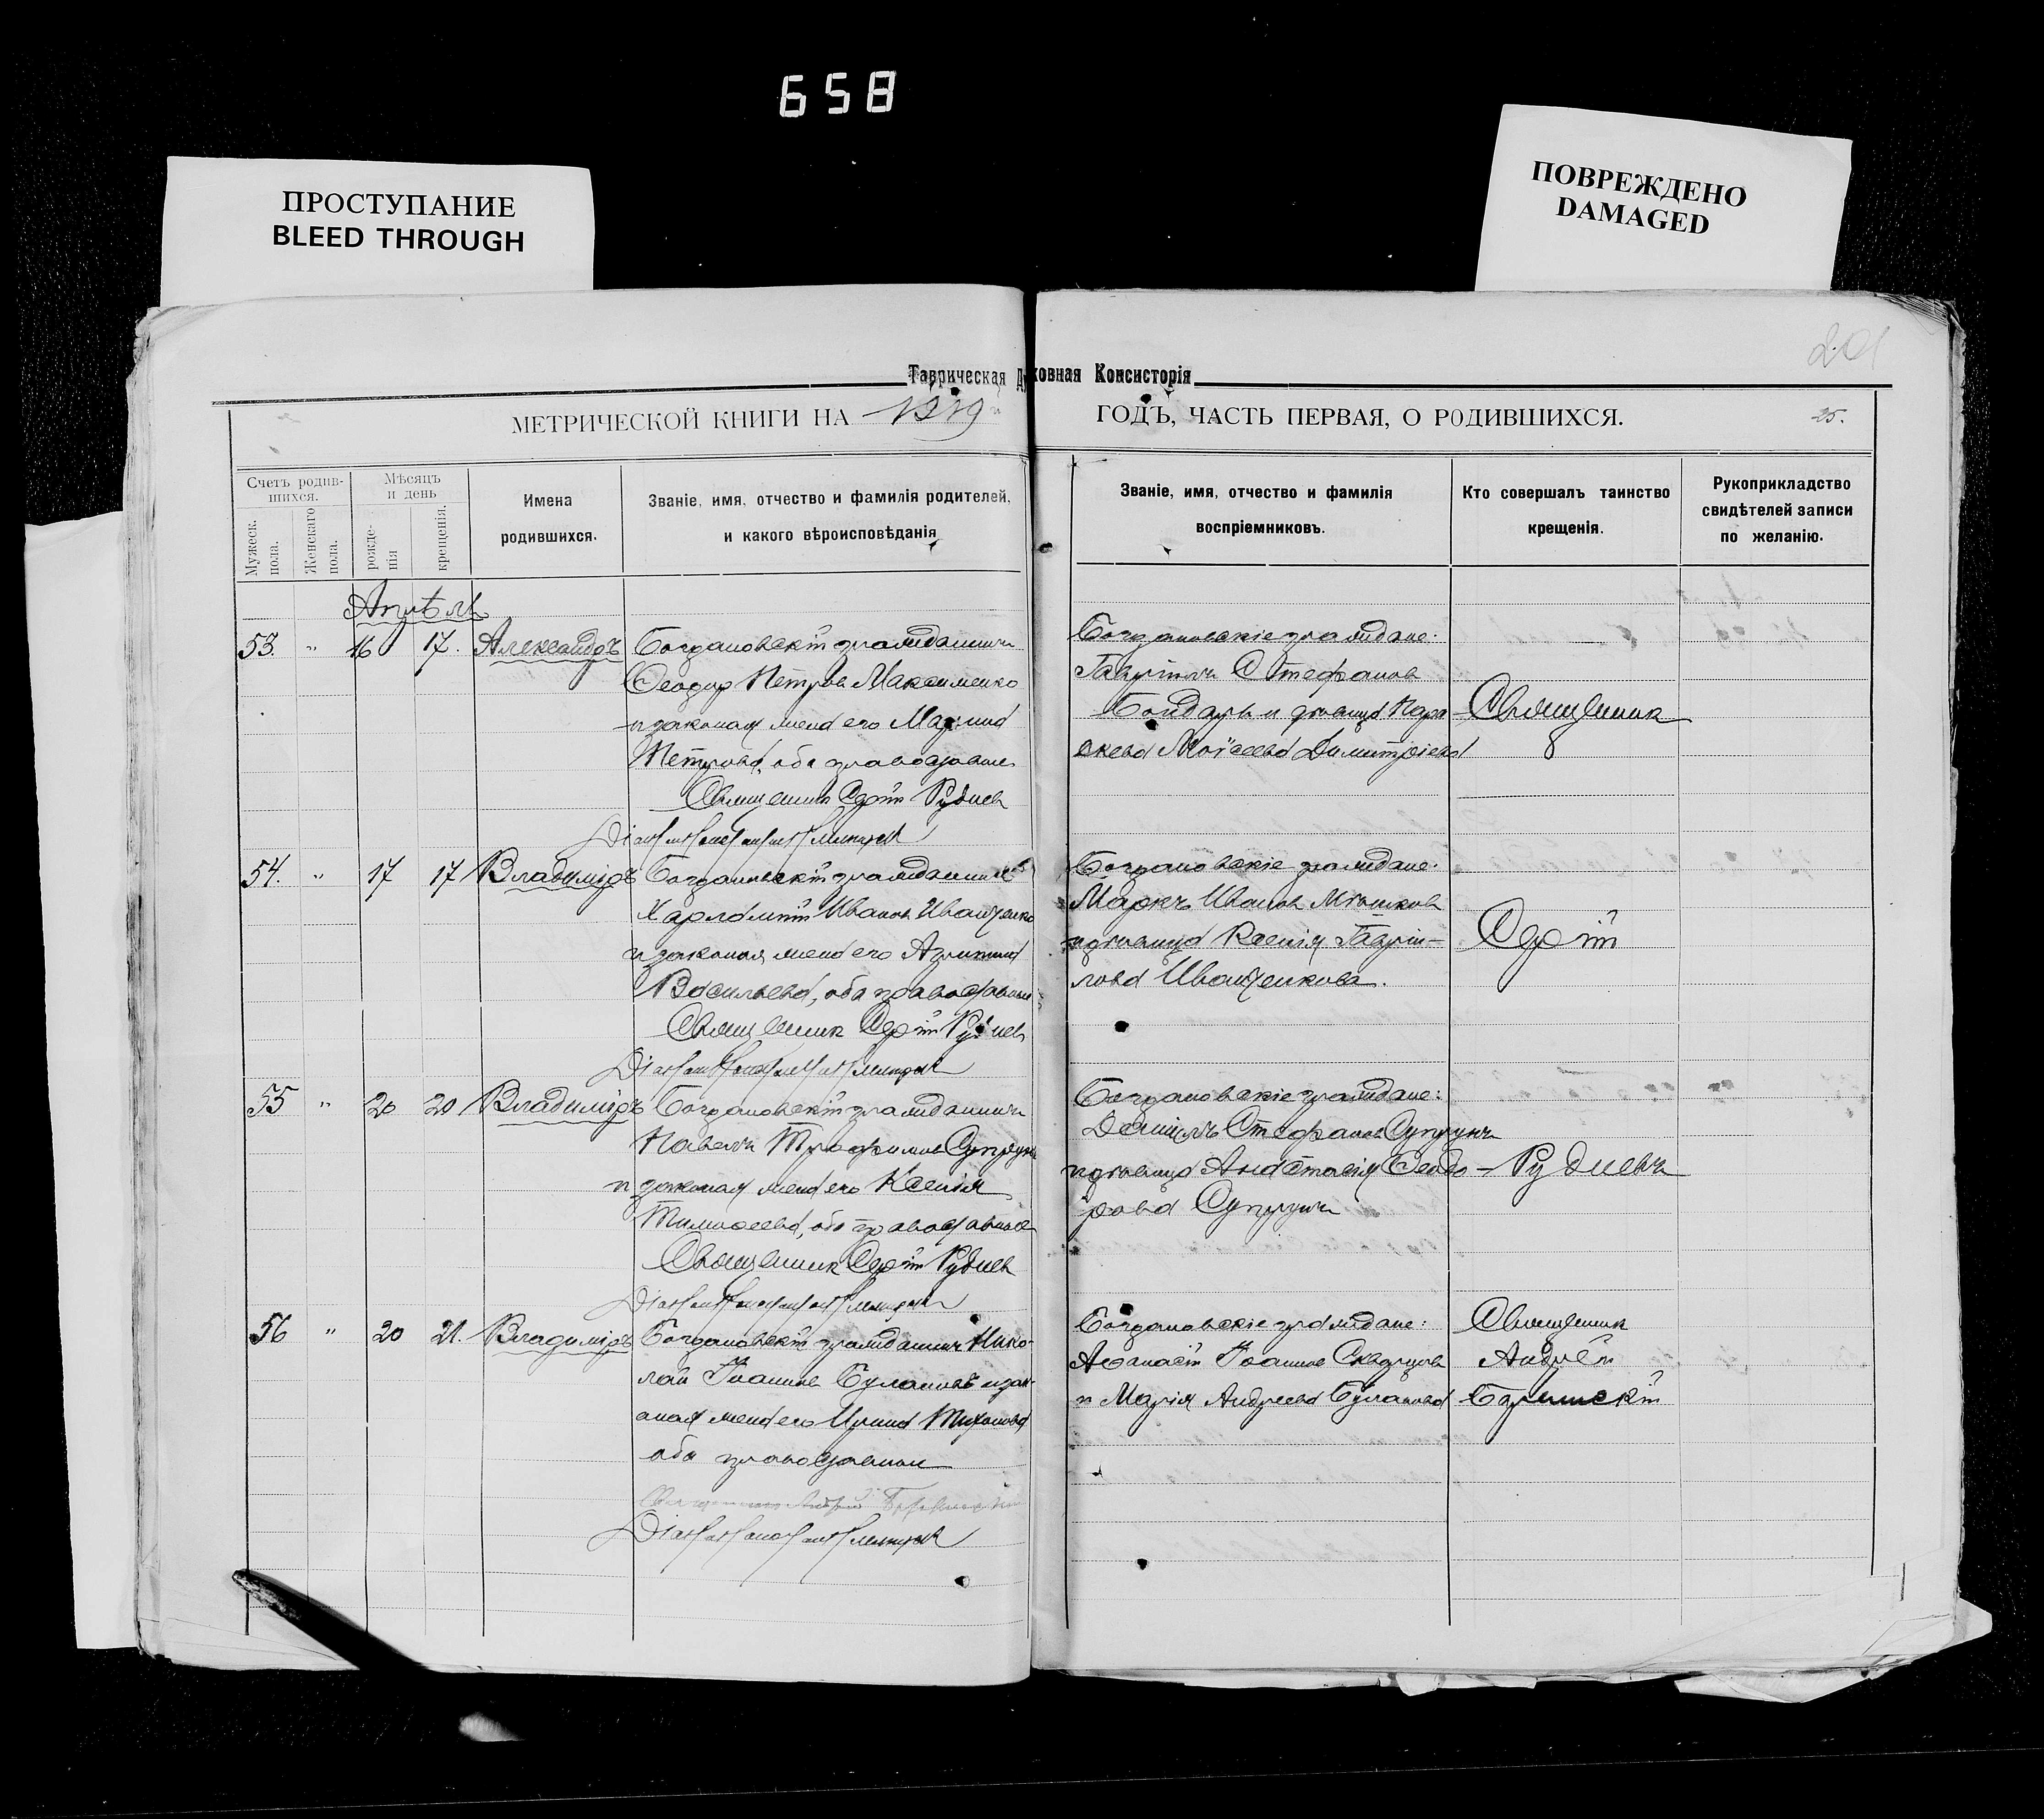 658
ПРОСТУПАНИЕ
BLEED THROUGH
ПОВРЕЖДЕНО
DAMAGED
201
Таврическая Духовная Консисторія
МЕТРИЧЕСКОЙ КНИГИ НА 1919 ГОДЪ, ЧАСТЬ ПЕРВАЯ, О РОДИВШИХСЯ.
25.
Счетъ родив-
шихся.
Мужеск.
пола.
Женскаго
пола.
Мѣсяцъ
и день
рожде-
нія
крещенія.
Имена
родившихся.
Званіе, имя, отчество и фамилія родителей,
и какого вѣроисповѣданія
Званіе, имя, отчество и фамилія
воспріемниковъ.
Кто совершалъ таинство
крещенія.
Рукоприкладство
свидѣтелей записи
по желанію.
Апрѣль
53. " 16 17. Александръ
Богдановскій гражданинъ
Ѳеодоръ Петровъ Максименко
и законная жена его Марина
Петрова, оба православные
Священникъ Сергій Рудневъ
Богдановскіе граждане:
Гавріилъ Стефановъ
Бондарь и дѣвица Пара
скева Моѵсеева Димитріева
Священникъ
54. " 17 17 Владиміръ
Богдановскій гражданинъ
Харлампій Ивановъ Иващенко
и законная жена его
Васильева, оба православные
Священникъ Сергій Рудневъ
Богдановскіе граждане:
Маркъ Ивановъ
и дѣвица Ксенія Гаврiи-
лова Иващенкова.
Сергій
55 " 20 20 Владиміръ
Богдановскій гражданинъ
Павелъ Трофимовъ Супрунъ
и законная жена его Ксенія
Тимоѳеева, оба православные
Священникъ Сергій Рудневъ
Богдановскіе граждане:
Даніилъ Стефановъ Супрунъ
и дѣвица Анастасія Ѳеодо-
рова Супрунъ
Рудневъ
56 " 20 21. Владиміръ
Богдановскій гражданинъ Нико-
лай Іоанновъ Булановъ и зак-
онная жена его Ирина Тихонова
оба православные
Богдановскіе граждане:
Аѳанасій Іоанновъ
и Марія Андреева Буланова
Священникъ
Андрей